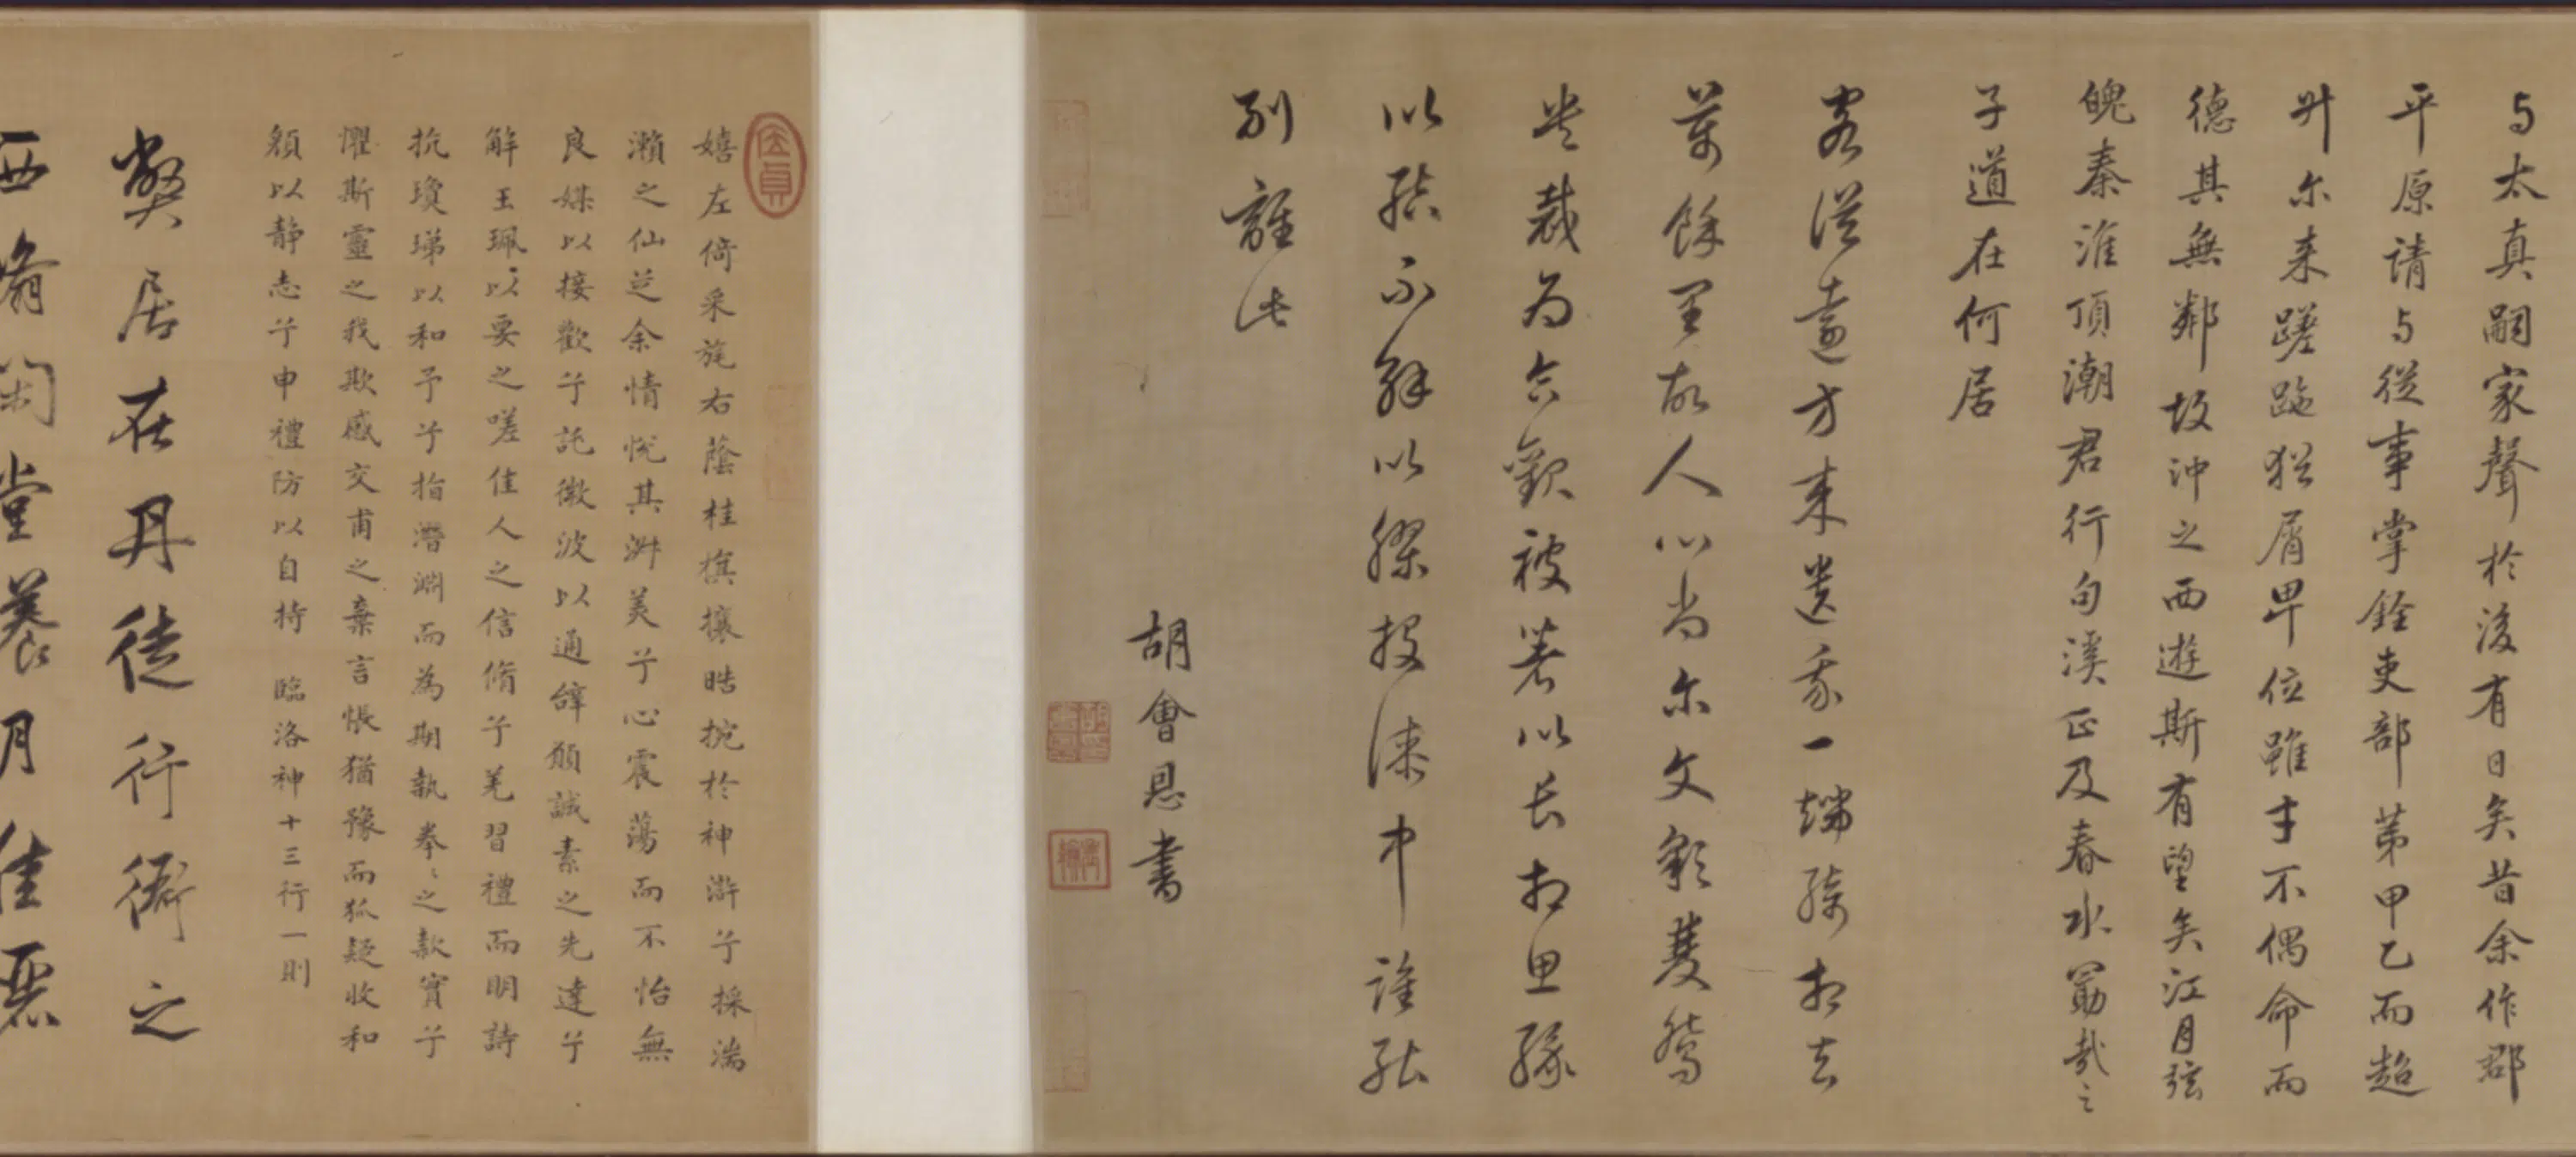 与太真嗣家聲於後有日矣昔余作郡
平原請与從事掌銓吏部第甲乙而超
升尔来蹉跎猶屑卑位雖才不偶命而
德其無鄰故沖之西遊斯有望矣江月弦
魄秦淮頂潮君行句溪正及春水勗哉之
子道在何居
客從遠方来遺我一端綺相去
萬餘里故人心尚尔文彩雙鴛
鴦裁為合歡被著以長相思緣
以結不解以膠投漆中誰能
别離此
胡會恩書
嬉左倚采旄右蔭桂旗攘皓捥於神滸兮採湍
瀨之仙芝余情悅其淑美兮心震蕩而不怡無
良媒以接歡兮託微波以通辭願誠素之先達兮
解玉珮以要之嗟佳人之信脩兮羌習禮而明詩
抗瓊珶以和予兮指潛淵而為期執拳拳之款實兮
懼斯靈之我欺感交甫之棄言悵猶豫而狐疑收和
顏以静志兮申禮防以自持 臨洛神十三行一則
弊居在丹徒行衙之
西脩閒堂養月佳